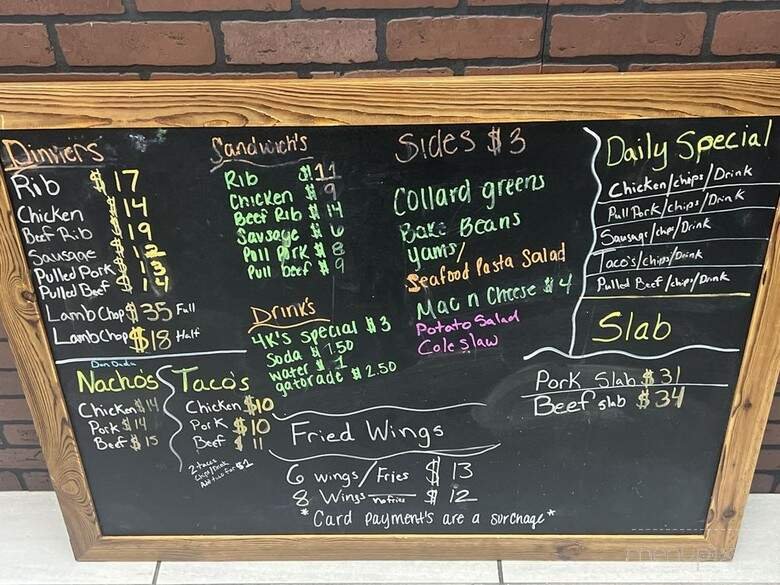 Dinners
Rib $17
Chicken $14
Beef Rib $19
Sausage $12
Pulled Pork $13
Pulled Beef $14
Lamb Chop $35 Full
Lamb Chop $18 Half
Sandwich's
Rib $11
Chicken $9
Beef Rib $14
Sausage $6
Pull Pork $8
Pull beef $9
Drink's
4K's Special $3
Soda $1.50
water $1
gatorade $2.50
Sides $3
Collard greens
Bake Beans
Yams/
Seafood Pasta Salad
Mac n Cheese $4
Potato Salad
Cole slaw
Daily Special
Chicken/chips/Drink
Pull Pork/chips/Drink
Sausage/chips/Drink
Taco's/chips/Drink
Pulled Beef/chips/Drink
Slab
Pork Slab $31
Beef slab $34
Don Dada
Nacho's
Chicken $14
Pork $14
Beef $15
Taco's
Chicken $10
Pork $10
Beef $11
2 tacos
Chips/Drink
Add taco for $1
Fried Wings
6 wings/Fries $13
8 Wings no fries $12
*Card Payment's are a surchage*